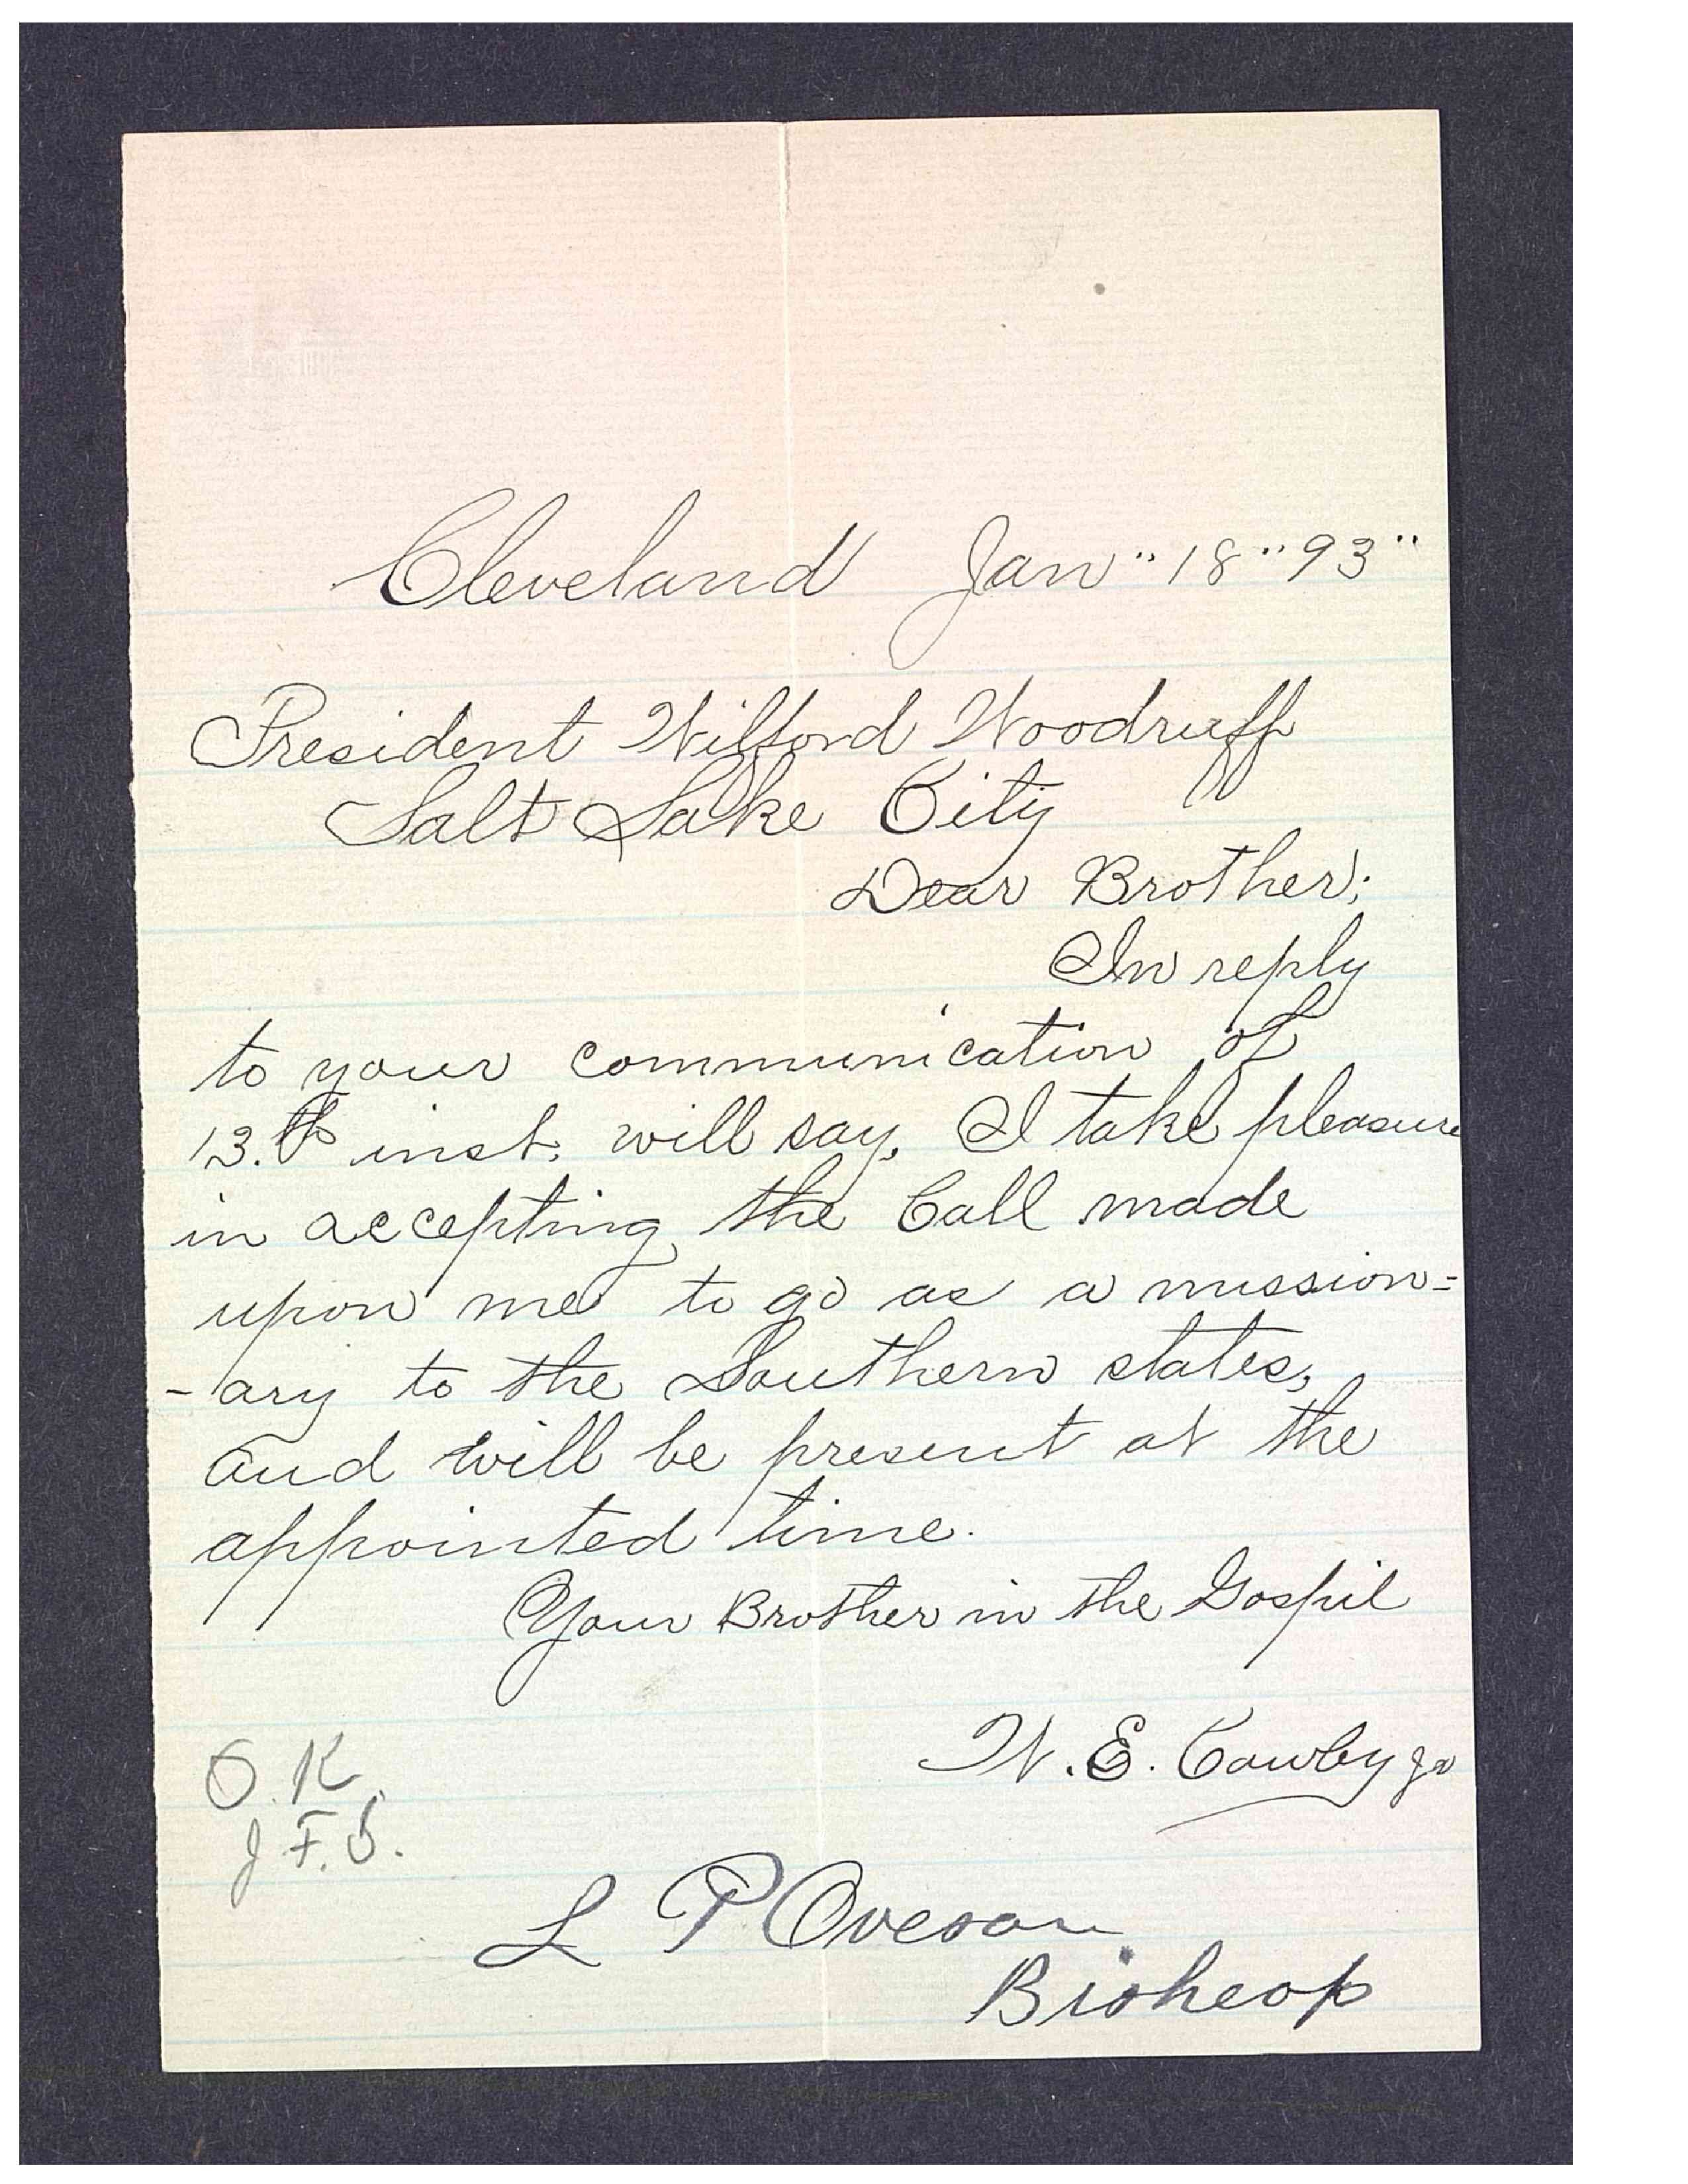 Cleveland Jan" 18" 93"
President Wilford Woodruff
Salt Lake City
Dear Brother;
In reply
to your communication of
13.th inst. will say, I take pleasure
in accepting the Call made
upon me to go as a mission=
-ary to the Southern states,
and will be present at the
appointed time.
Your Brother in the Gospil
W. E. Cowley Jr
O. K.
J. F. S.
L P Oveson
Bisheop